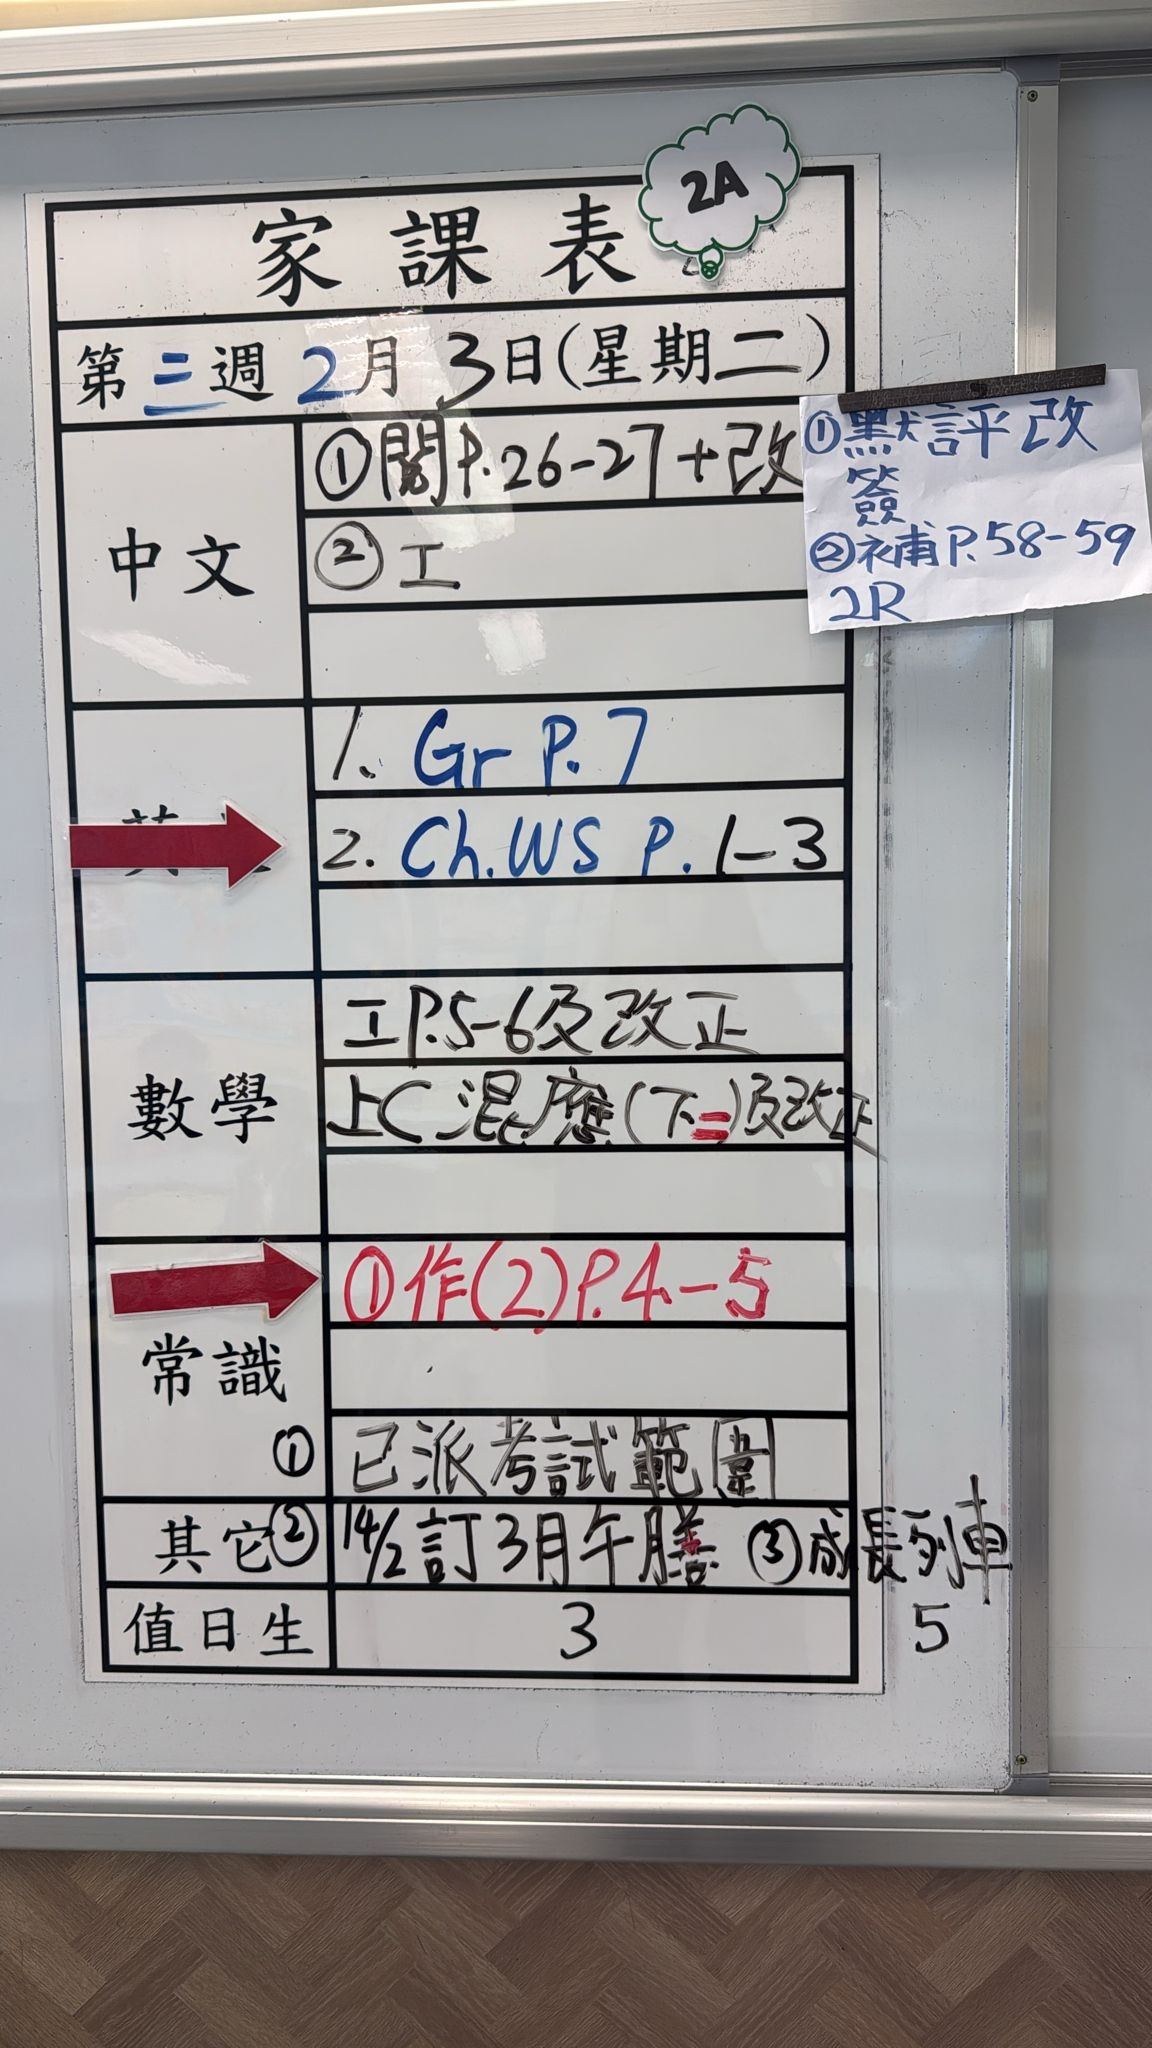 2A
家課表
第三週 2月3日(星期二)
中文
①閱P.26-27+改
②工
①默評改
簽
②補P.58-59
2R
1. Gr P.7
2. Ch.WS P.1-3
數學
工P.5-6及改正
上C 混應(下二)及改正
常識
①作(2)P.4-5
① 已派考試範圍
其它 ② 14/2訂3月午膳 ③成長列車
值日生 3 5